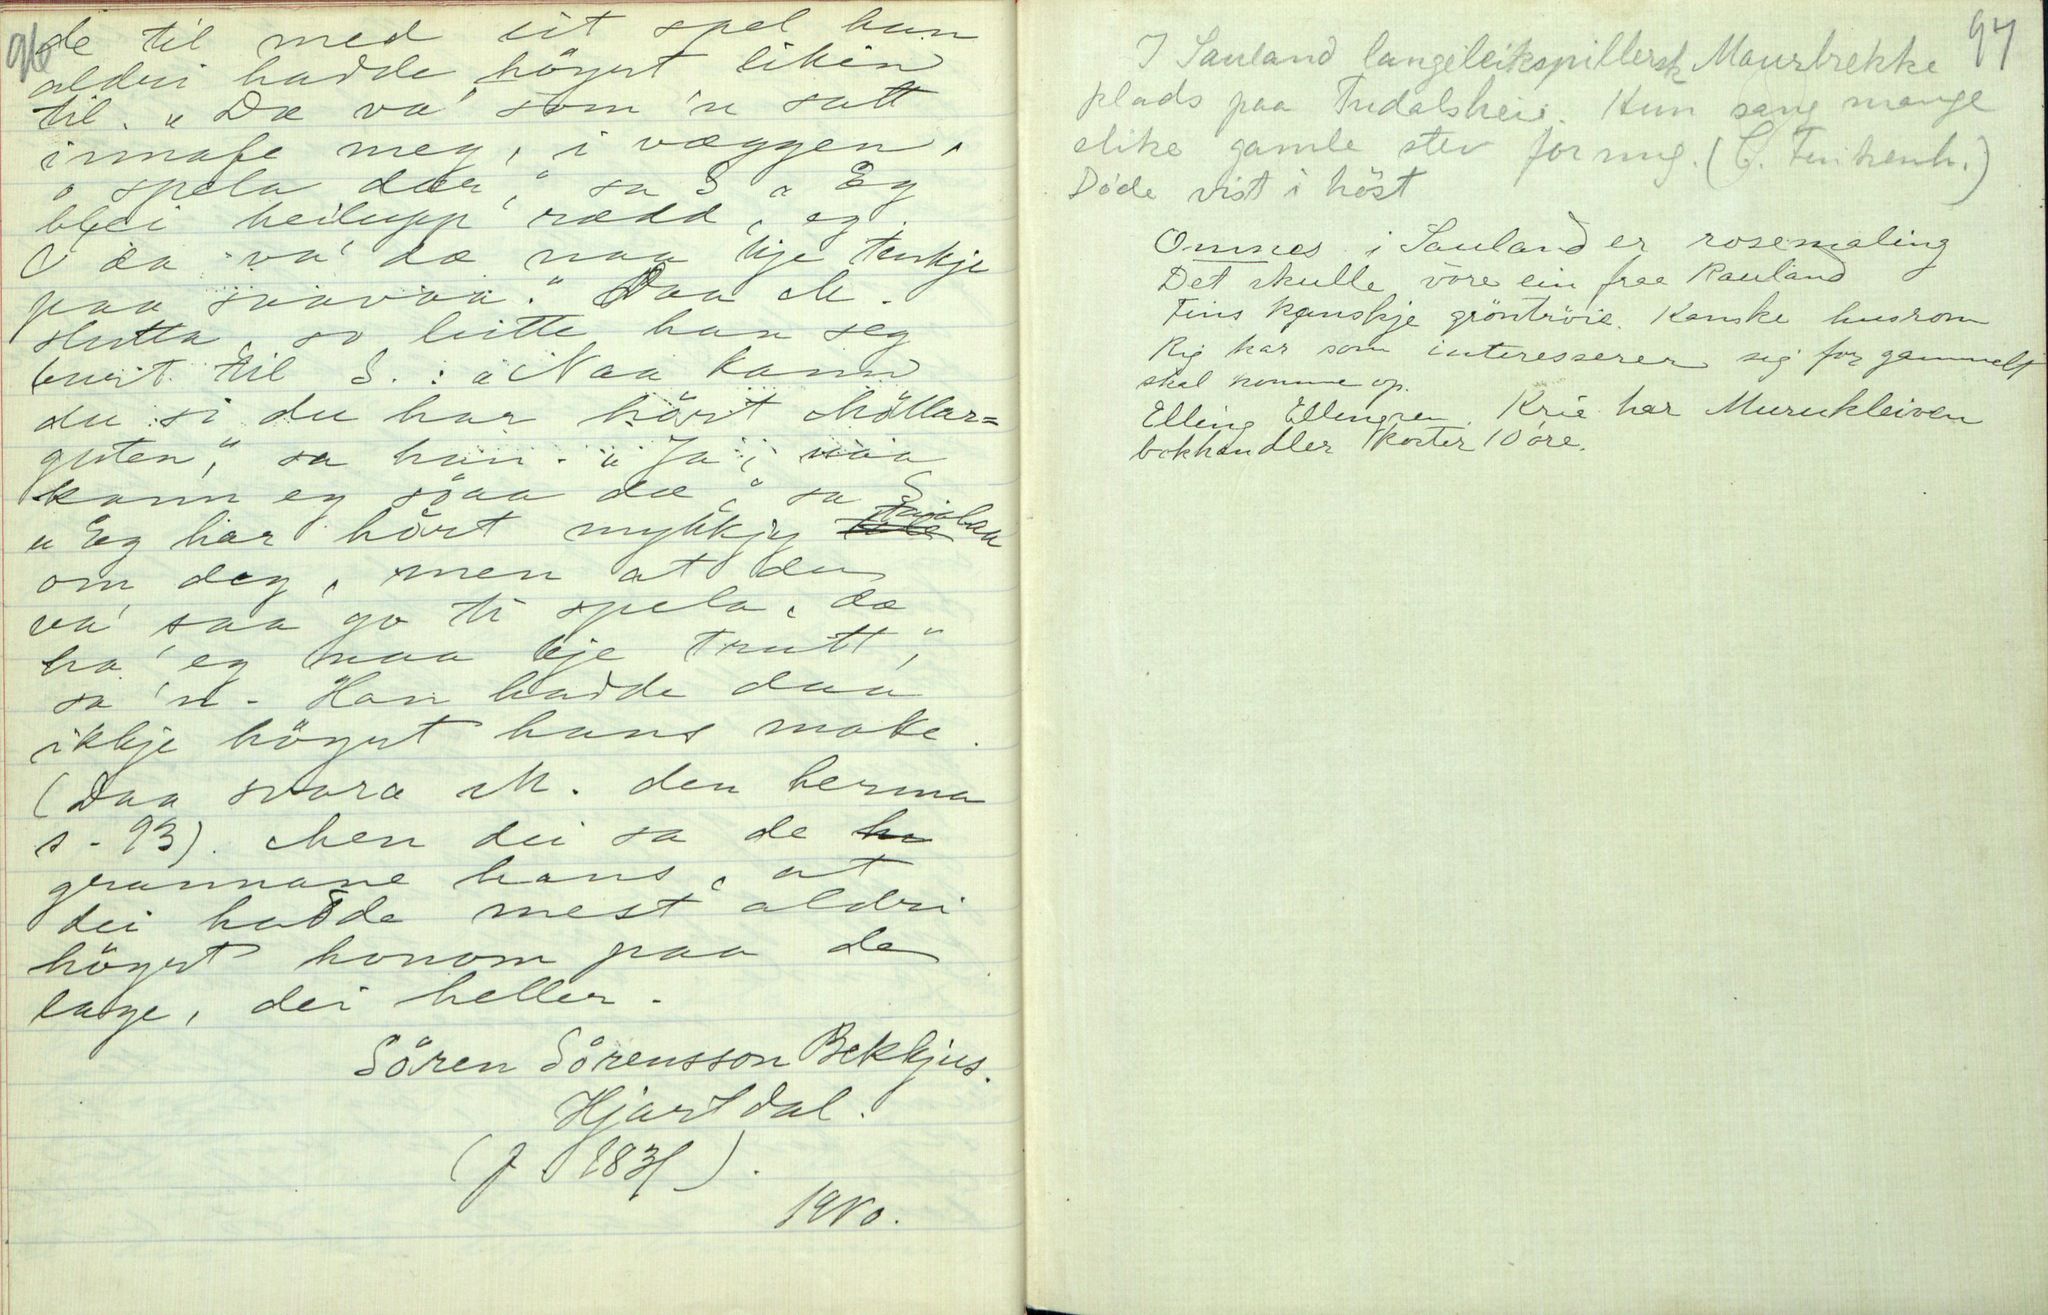 96
de til med eit spel han
aldri hadde höyrt likin
til. „Dæ va' som 'n satt
innafe meg, i væggen,
o spela der," sa S „Eg
blei heilupp rædd, eg.
O da va' dæ naa kje tenkje
paa saavaa." Daa M.
slutta, so leitte han seg
burt til S.: „Naa kann
du si du har hört Möllar=
guten," sa han. „Ja, naa
kann eg såaa dæ," sa S
„Eg har hört mykkjy
om deg, men at du
va' saa go ti spela, dæ
ha' eg naa kje trutt,"
sa 'n - Han hadde daa
ikkje höyrt hans make.
(Daa svara M. den herma
s. 93). Men dei sa de
grannane hans, at
dei hadde mest aldri
höyrt honom paa de
lage, dei heller.
Sören Sörensson Bekkjus.
Hjartdal.
(f. 183
1910.
97
I Sauland langeleikspillersk Maurbrekke
plads paa Tudalsheie. Hun sang mange
slike gamle stev for mig. (C.
Döde vist i höst
Omnes i Sauland er rosemaling
Det skulle vöre ein fraa Rauland
Fins kanskje gröntröie. Kanske husrom
Rig kar som interesserer sig for gammelt
skal komme op.
Elling Ellingsen Krie har Murukleiven
bokhandler koster 10 öre.